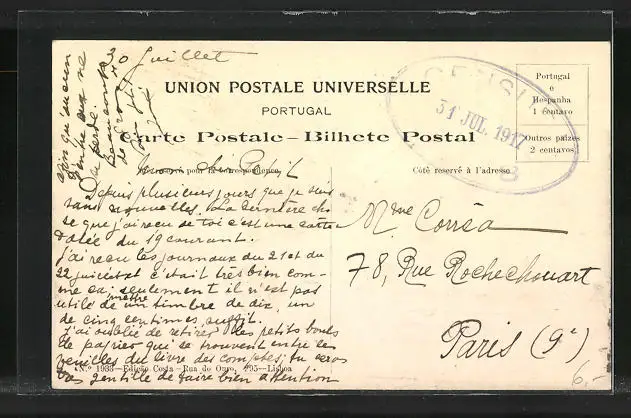 30 Juillet
UNION POSTALE UNIVERSELLE
PORTUGAL
Carte Postale – Bilhete Postal
pour la correspondence
Côté reservé à l'adresse
Portugal
e
Hespanha
1 centavo
Outros paizes
2 centavos
31 JUL. 1917
3
Depuis plusieurs jours que je suis
sans nouvelles. La dernière cho
se que j'ai reçu de toi c'est une carte
datée du 19 courant.
J'ai reçu les journaux du 21 et du
22 juillet et c'était très bien com-
me ça; seulement il n'est pas
utile de mettre un timbre de dix, un
de cinq centimes suffit.
J'ai oublié de retirer les petits bouts
de papier qui se trouvent entre les
feuilles du livre des comptes; tu seras
très gentille de faire bien attention
afin qu'aucun
d'entre eux ne
se perde.
Mme Corrêa
78, Rue Rochechouart
Paris (9e)
N.º 1933—Edição Costa—Rua do Ouro, 295—Lisboa
6,-